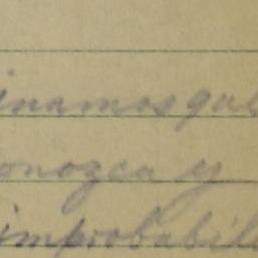 inamos que
onozca y
improbabil